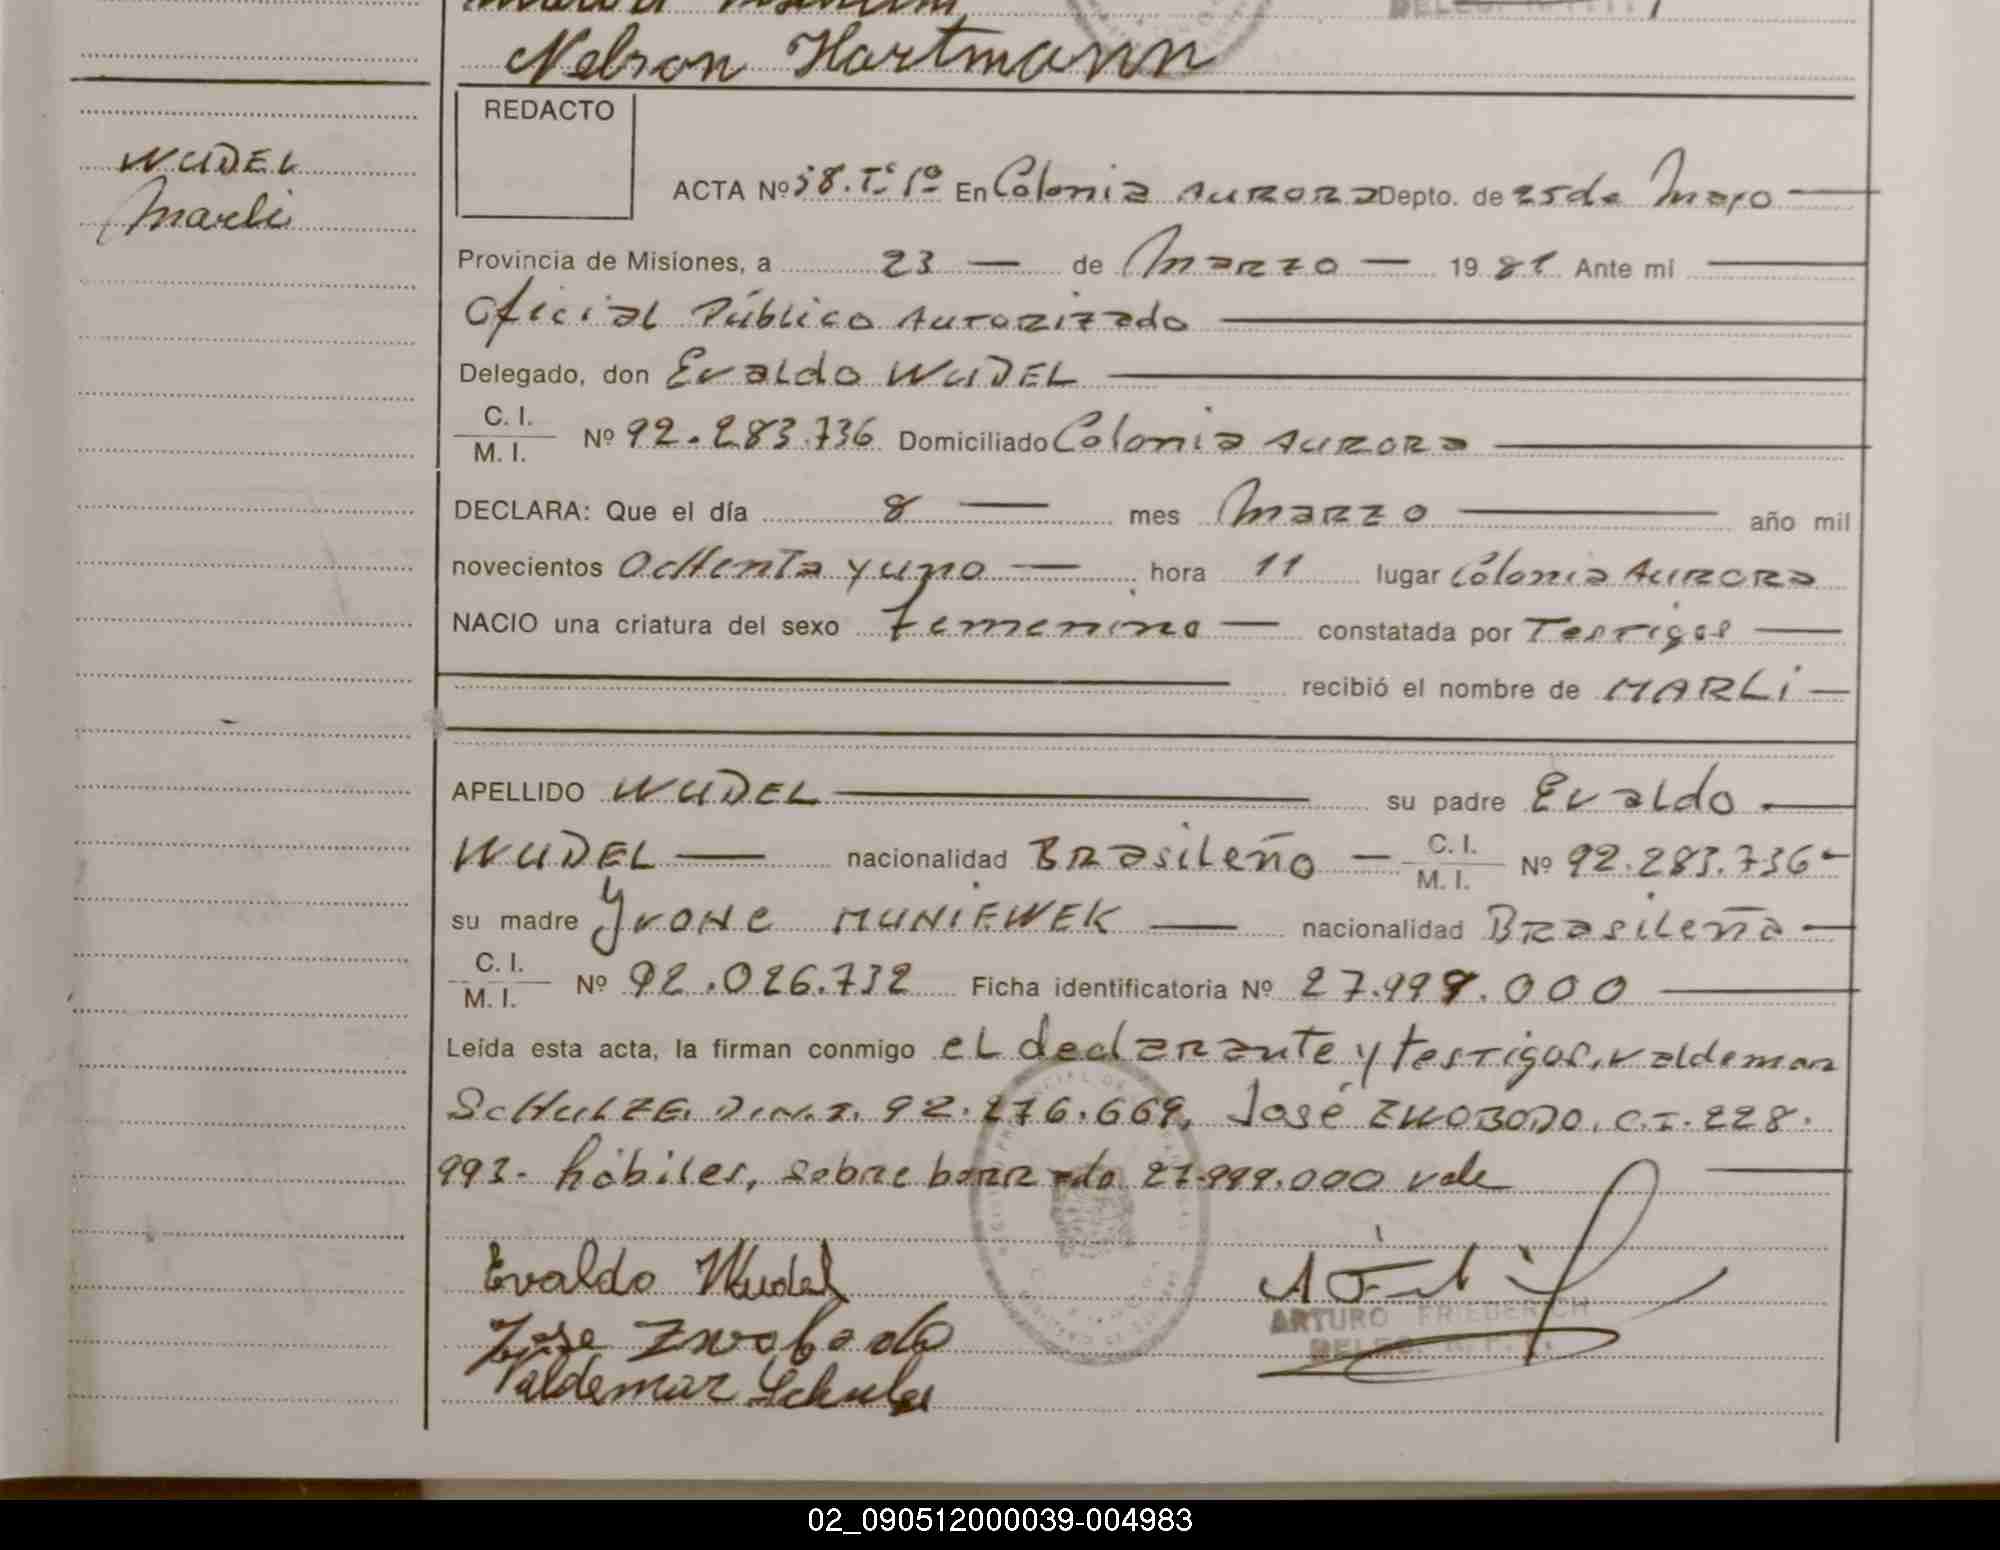 Nelson Hartmann
REDACTO
WUDEL
Marli
ACTA Nº 58. Tº 1º En Colonia Aurora Depto. de 25 de Mayo
Provincia de Misiones, a 23 de Marzo 1981 Ante mi
Oficial Público Autorizado
Delegado, don Evaldo WUDEL
C. I.
M. I. Nº 92.283.736 Domiciliado Colonia Aurora
DECLARA: Que el día 8 mes Marzo año mil
novecientos ocHenta y uno hora 11 lugar Colonia Aurora
NACIO una criatura del sexo femenino constatada por Testigos
recibió el nombre de MARLi
APELLIDO WUDEL su padre Evaldo
WUDEL nacionalidad Brasileño C. I. M. I. Nº 92.283.736
su madre Yvone MUNIEWEK nacionalidad Brasileña
C. I.
M. I. Nº 92.026.732 Ficha identificatoria Nº 27.999.000
Leída esta acta, la firman conmigo el declarante y testigos, Valdemar
ScHulZE. D.N.I. 92.276.669, José ZWOBODO, C.I. 228.
993- hábiles, sobre borrado 27.999.000 vale
Evaldo Wudel
Jose Zwobodo
Valdemar Schulze
ARTURO FRIEDERICH
02_090512000039-004983